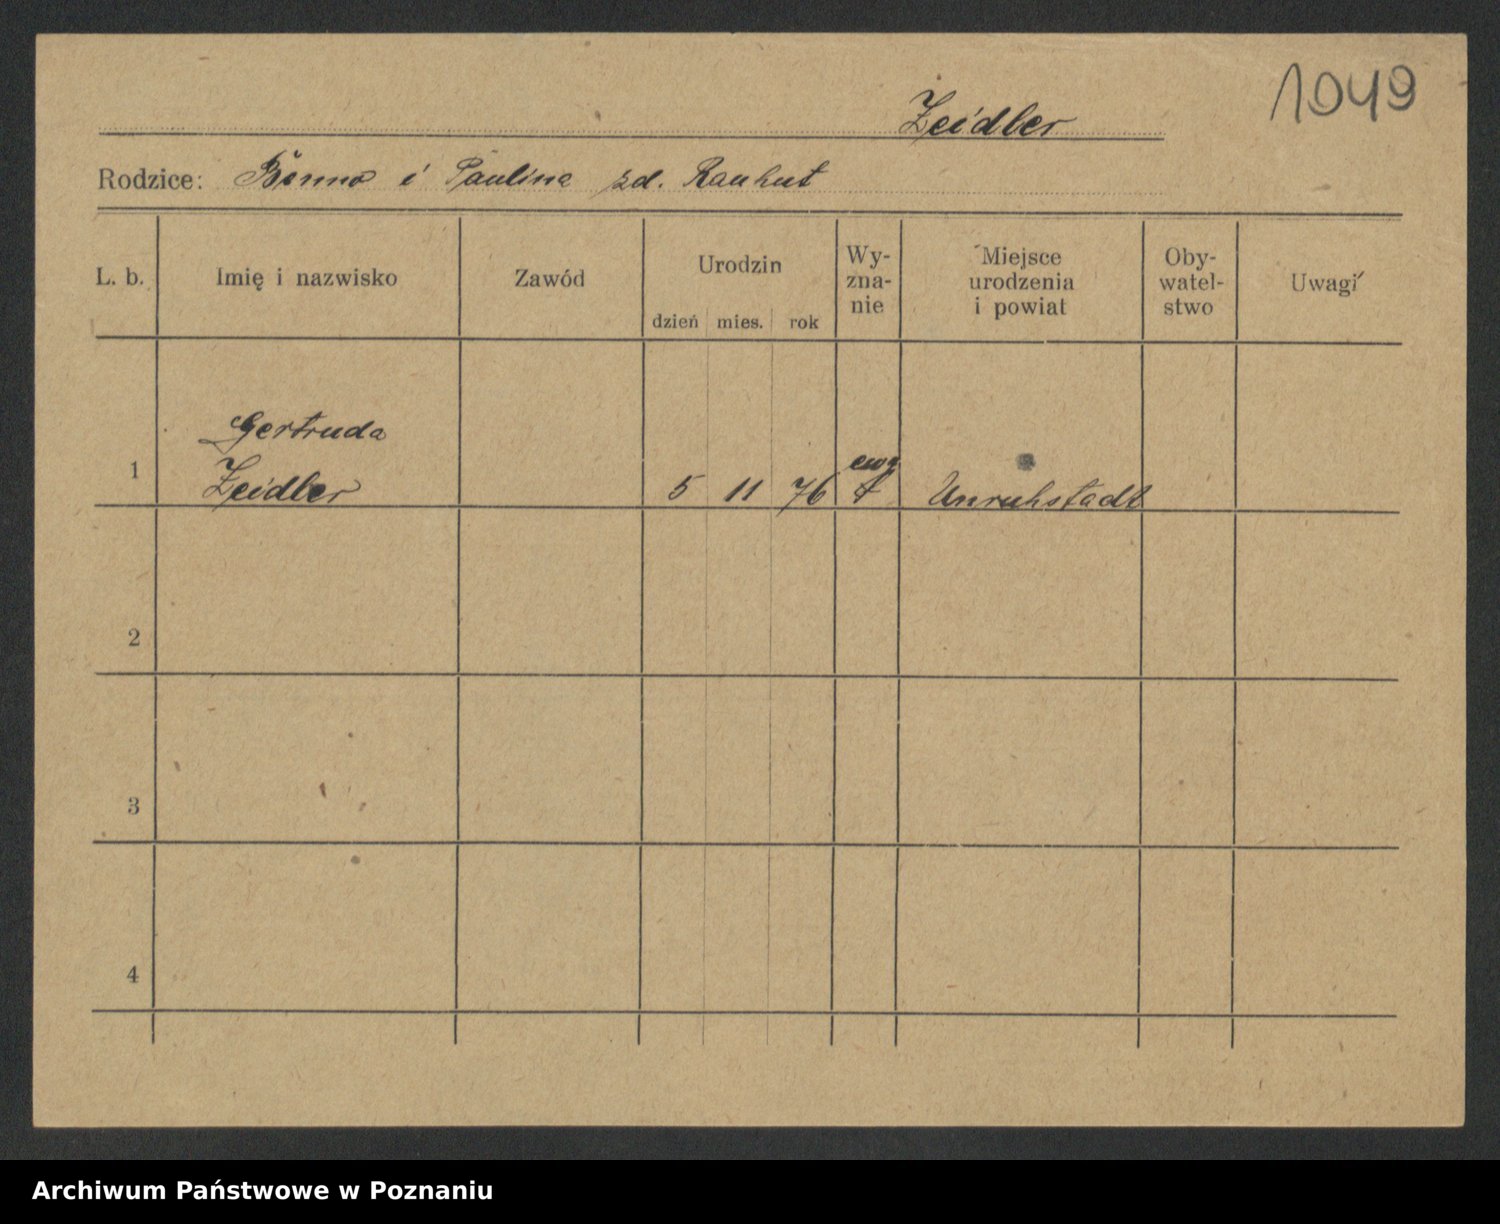 1049
Zeidler
Rodzice: Benno i Paulina zd. Rauhut
L. b. Imię i nazwisko Zawód Urodzin Wy-zna-nie Miejsce urodzenia i powiat Oby-watel-stwo Uwagi
dzień mies. rok
Gertruda
1 Zeidler 5 11 76 ewg Unruhstadt
2
3
4
Archiwum Państwowe w Poznaniu